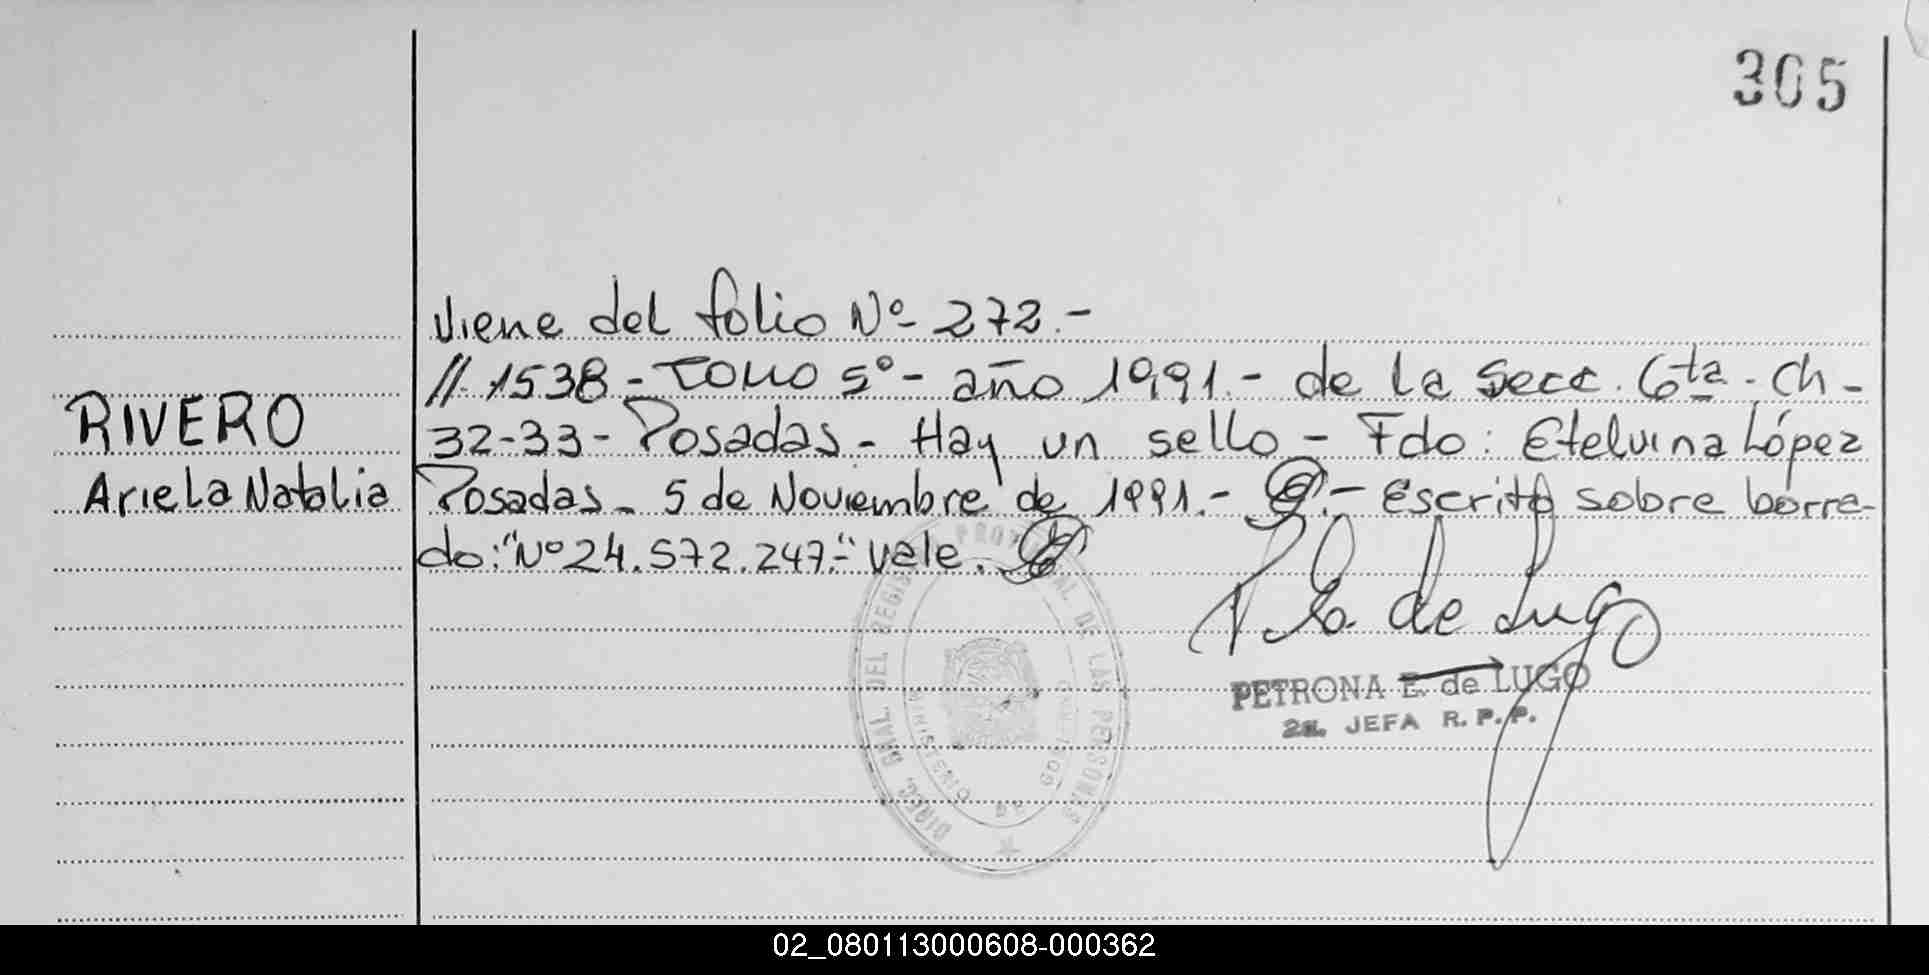 305
Viene del folio Nº 272.-
//.1538 - TOMO 5º - año 1991.- de la Secc. 6ta. Ch-
RIVERO
32-33- Posadas.- Hay un sello - Fdo: Etelvina López
Ariela Natalia
Posadas - 5 de Noviembre de 1991.- - Escrito sobre borra-
do: "Nº 24.572.247-" Vale.
P. E. de Lugo
PETRONA E. de LUGO
2a. JEFA R. P. P.
DIREC. GRAL. DEL REGISTRO PROVINCIAL DE LAS PERSONAS
MINISTERIO DE GOBIERNO
02_080113000608-000362